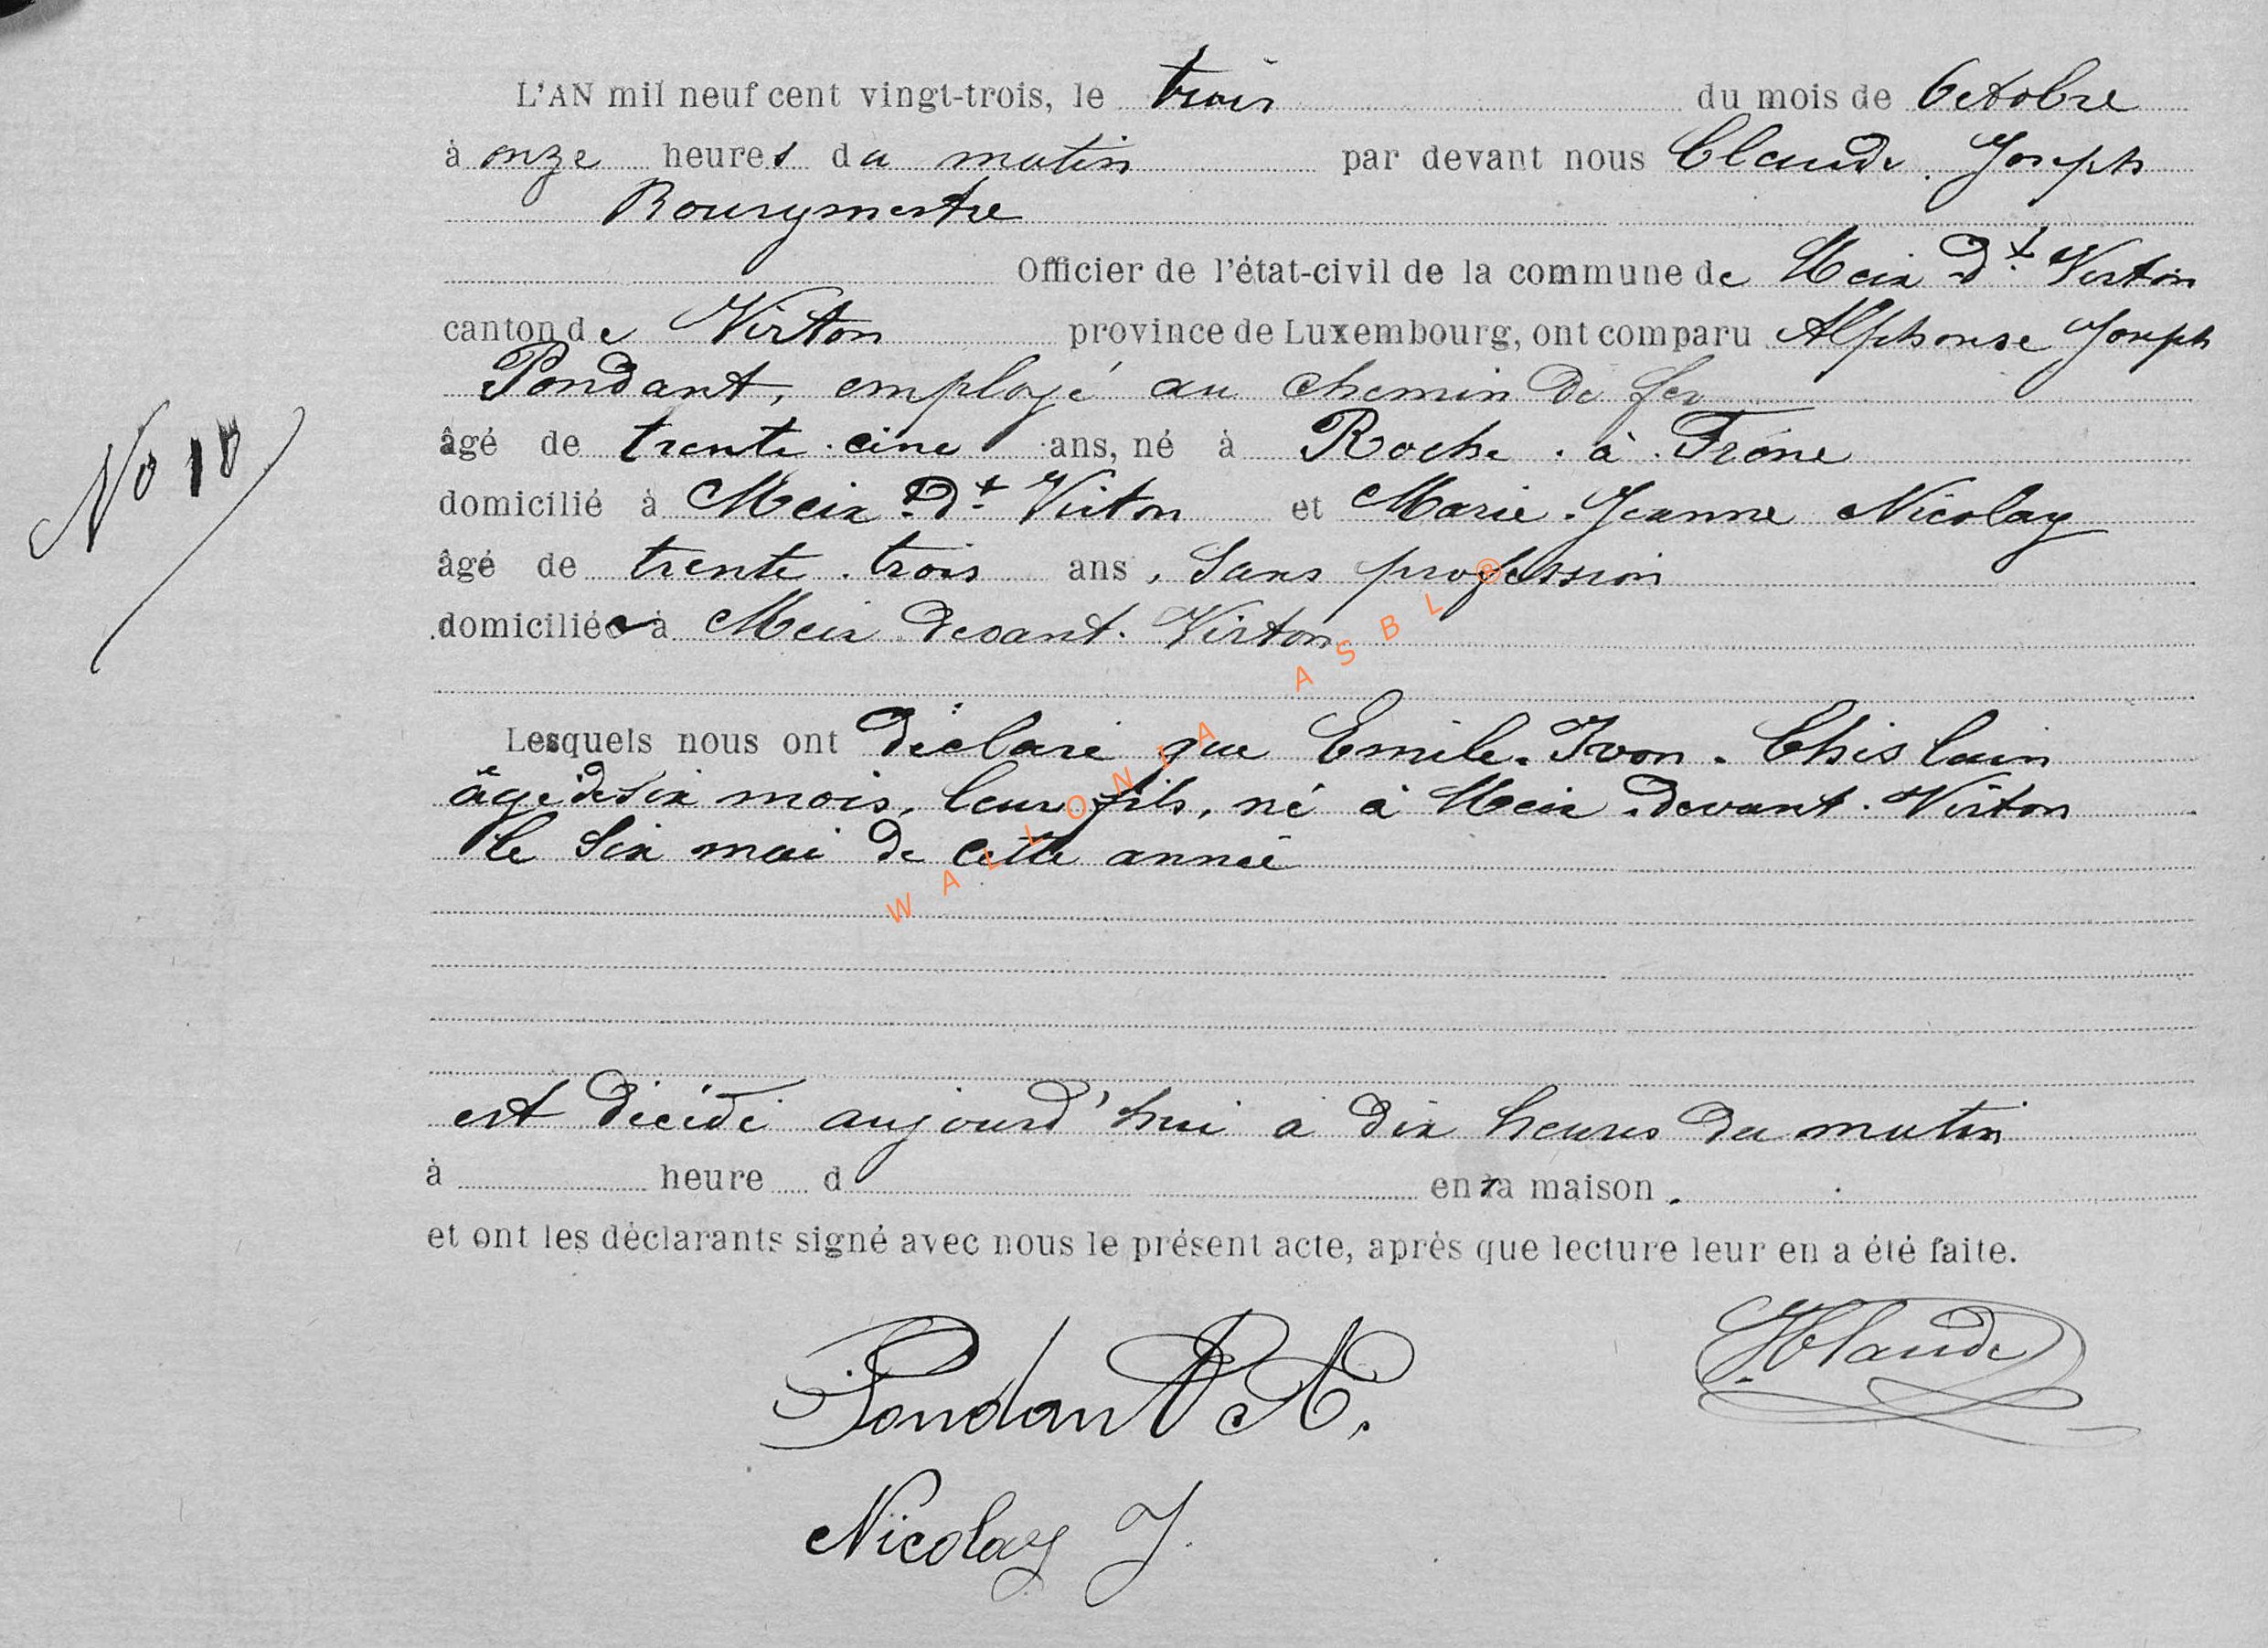 L'AN mil neuf cent vingt-trois, le trois du mois de Octobre
à onze heures du matin par devant nous Claude. Joseph
Bourgmestre
Officier de l'état-civil de la commune de Meix Dt Virton
canton de Virton province de Luxembourg, ont comparu Alphonse Joseph
Pondant, employé au chemin de fer
âgé de trente-cinq ans, né à Roche. à. Frêne
No 18
domicilié à Meix-Dt Virton et Marie. Jeanne Nicolay
âgé de trente. trois ans, sans profession
domiciliée à Meix devant. Virton
Lesquels nous ont déclaré que Emile. Ivon. Ghislain
âgé de six mois, leur fils, né à Meix. devant. Virton
le six mai de cette année
WALLONIA ASBL ®
est décédé aujourd'hui à dix heures du matin
à heure d en sa maison.
et ont les déclarants signé avec nous le présent acte, après que lecture leur en a été faite.
Pondant A.
JClaude
Nicolay J.